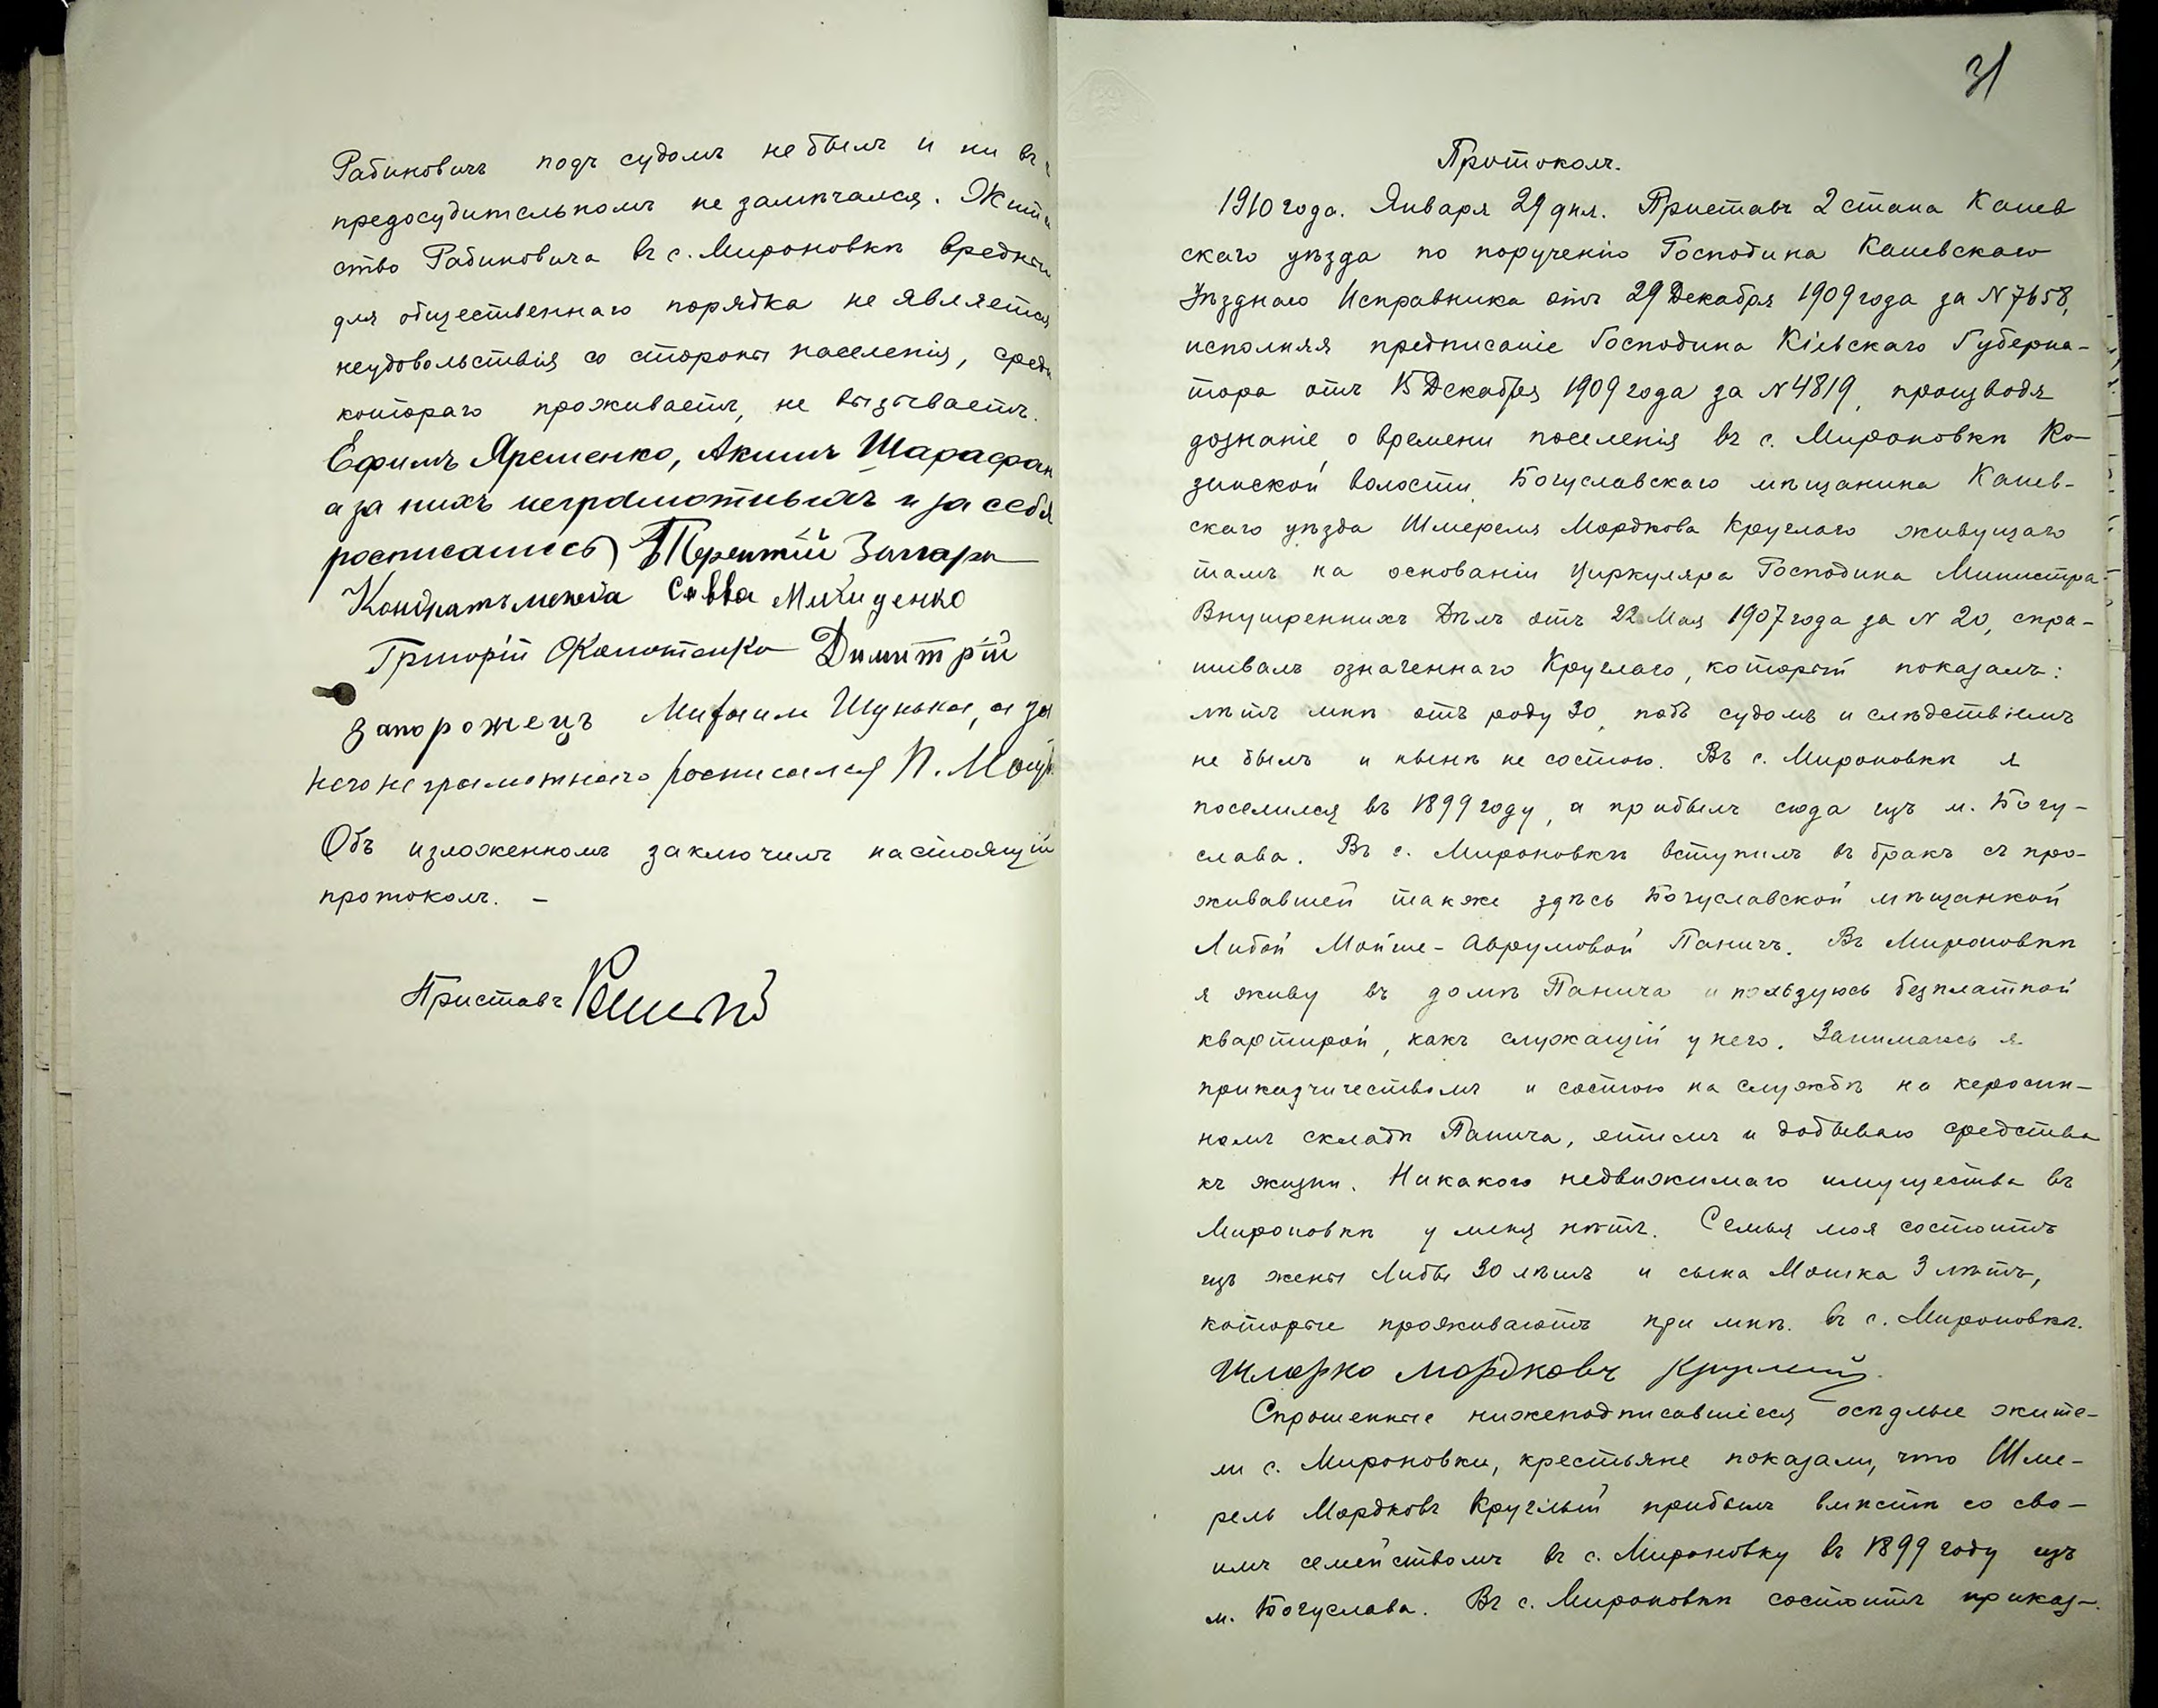 Рабиновичъ подъ судомъ не былъ и ни въ
предосудительномъ не замѣчался. Жит
ство Рабиновича въ с. Мироновкѣ вредны
для общественнаго порядка не является
неудовольствія со стороны населенія, среди
котораго проживаетъ, не вызываетъ.
Ефимъ Яременко, Акимъ Шарафан
а за нихъ неграмотныхъ и за себя
росписались Терентій
Савва
Григорій Димитрій
Запорожецъ а за
него неграмотнаго росписался П.
Объ изложенномъ заключилъ настоящій
протоколъ. –
Приставъ
31
Протоколъ.
1910 года. Января 29 дня. Приставъ 2 стана Канев
скаго уѣзда по порученію Господина Каневскаго
Уѣзднаго Исправника отъ 29 Декабря 1909 года за N 7658,
исполняя предписаніе Господина Кіевскаго Губерна-
тора отъ 15 Декабря 1909 года за N 4819, производя
дознаніе о времени поселенія въ с. Мироновкѣ Ко-
зинской волости Богуславскаго мѣщанина Канев-
скаго уѣзда Шмереля Мордкова Круглаго живущаго
тамъ на основаніи Циркуляра Господина Министра
Внутреннихъ Дѣлъ отъ 22 Мая 1907 года за N 20, спра-
шивалъ означеннаго Круглаго, который показалъ:
лѣтъ мнѣ отъ роду 30, подъ судомъ и слѣдствіемъ
не былъ и нынѣ не состою. Въ с. Мироновкѣ я
поселился въ 1899 году, а прибылъ сюда изъ м. Богу-
слава. Въ с. Мироновкѣ вступилъ въ бракъ съ про-
живавшей также здѣсь Богуславской мѣщанкой
Либой Мойше-Аврумовой Паничъ. Въ Мироновкѣ
я живу въ домѣ Панича и пользуюсь безплатной
квартирой, какъ служащій у него. Занимаюсь я
приказчичествомъ и состою на службѣ на керосин-
номъ складѣ Панича, этимъ и добываю средства
къ жизни. Никакого недвижимаго имущества въ
Мироновкѣ у меня нѣтъ. Семья моя состоитъ
изъ жены Либы 30 лѣтъ и сына Мошка 3 лѣтъ,
которые проживаютъ при мнѣ въ с. Мироновкѣ.
Шмерко Мордковъ Круглый.
Спрошенные нижеподписавшіеся осѣдлые жите-
ли с. Мироновки, крестьяне показали, что Шме-
рель Мордковъ Круглый прибылъ вмѣстѣ со сво-
имъ семействомъ въ с. Мироновку въ 1899 году изъ
м. Богуслава. Въ с. Мироновкѣ состоитъ приказ-